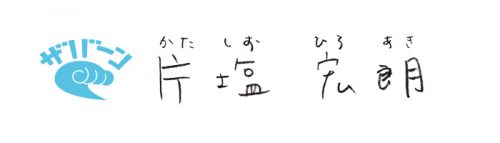 ザバーン
かた しお ひろ あき
片塩 宏朗